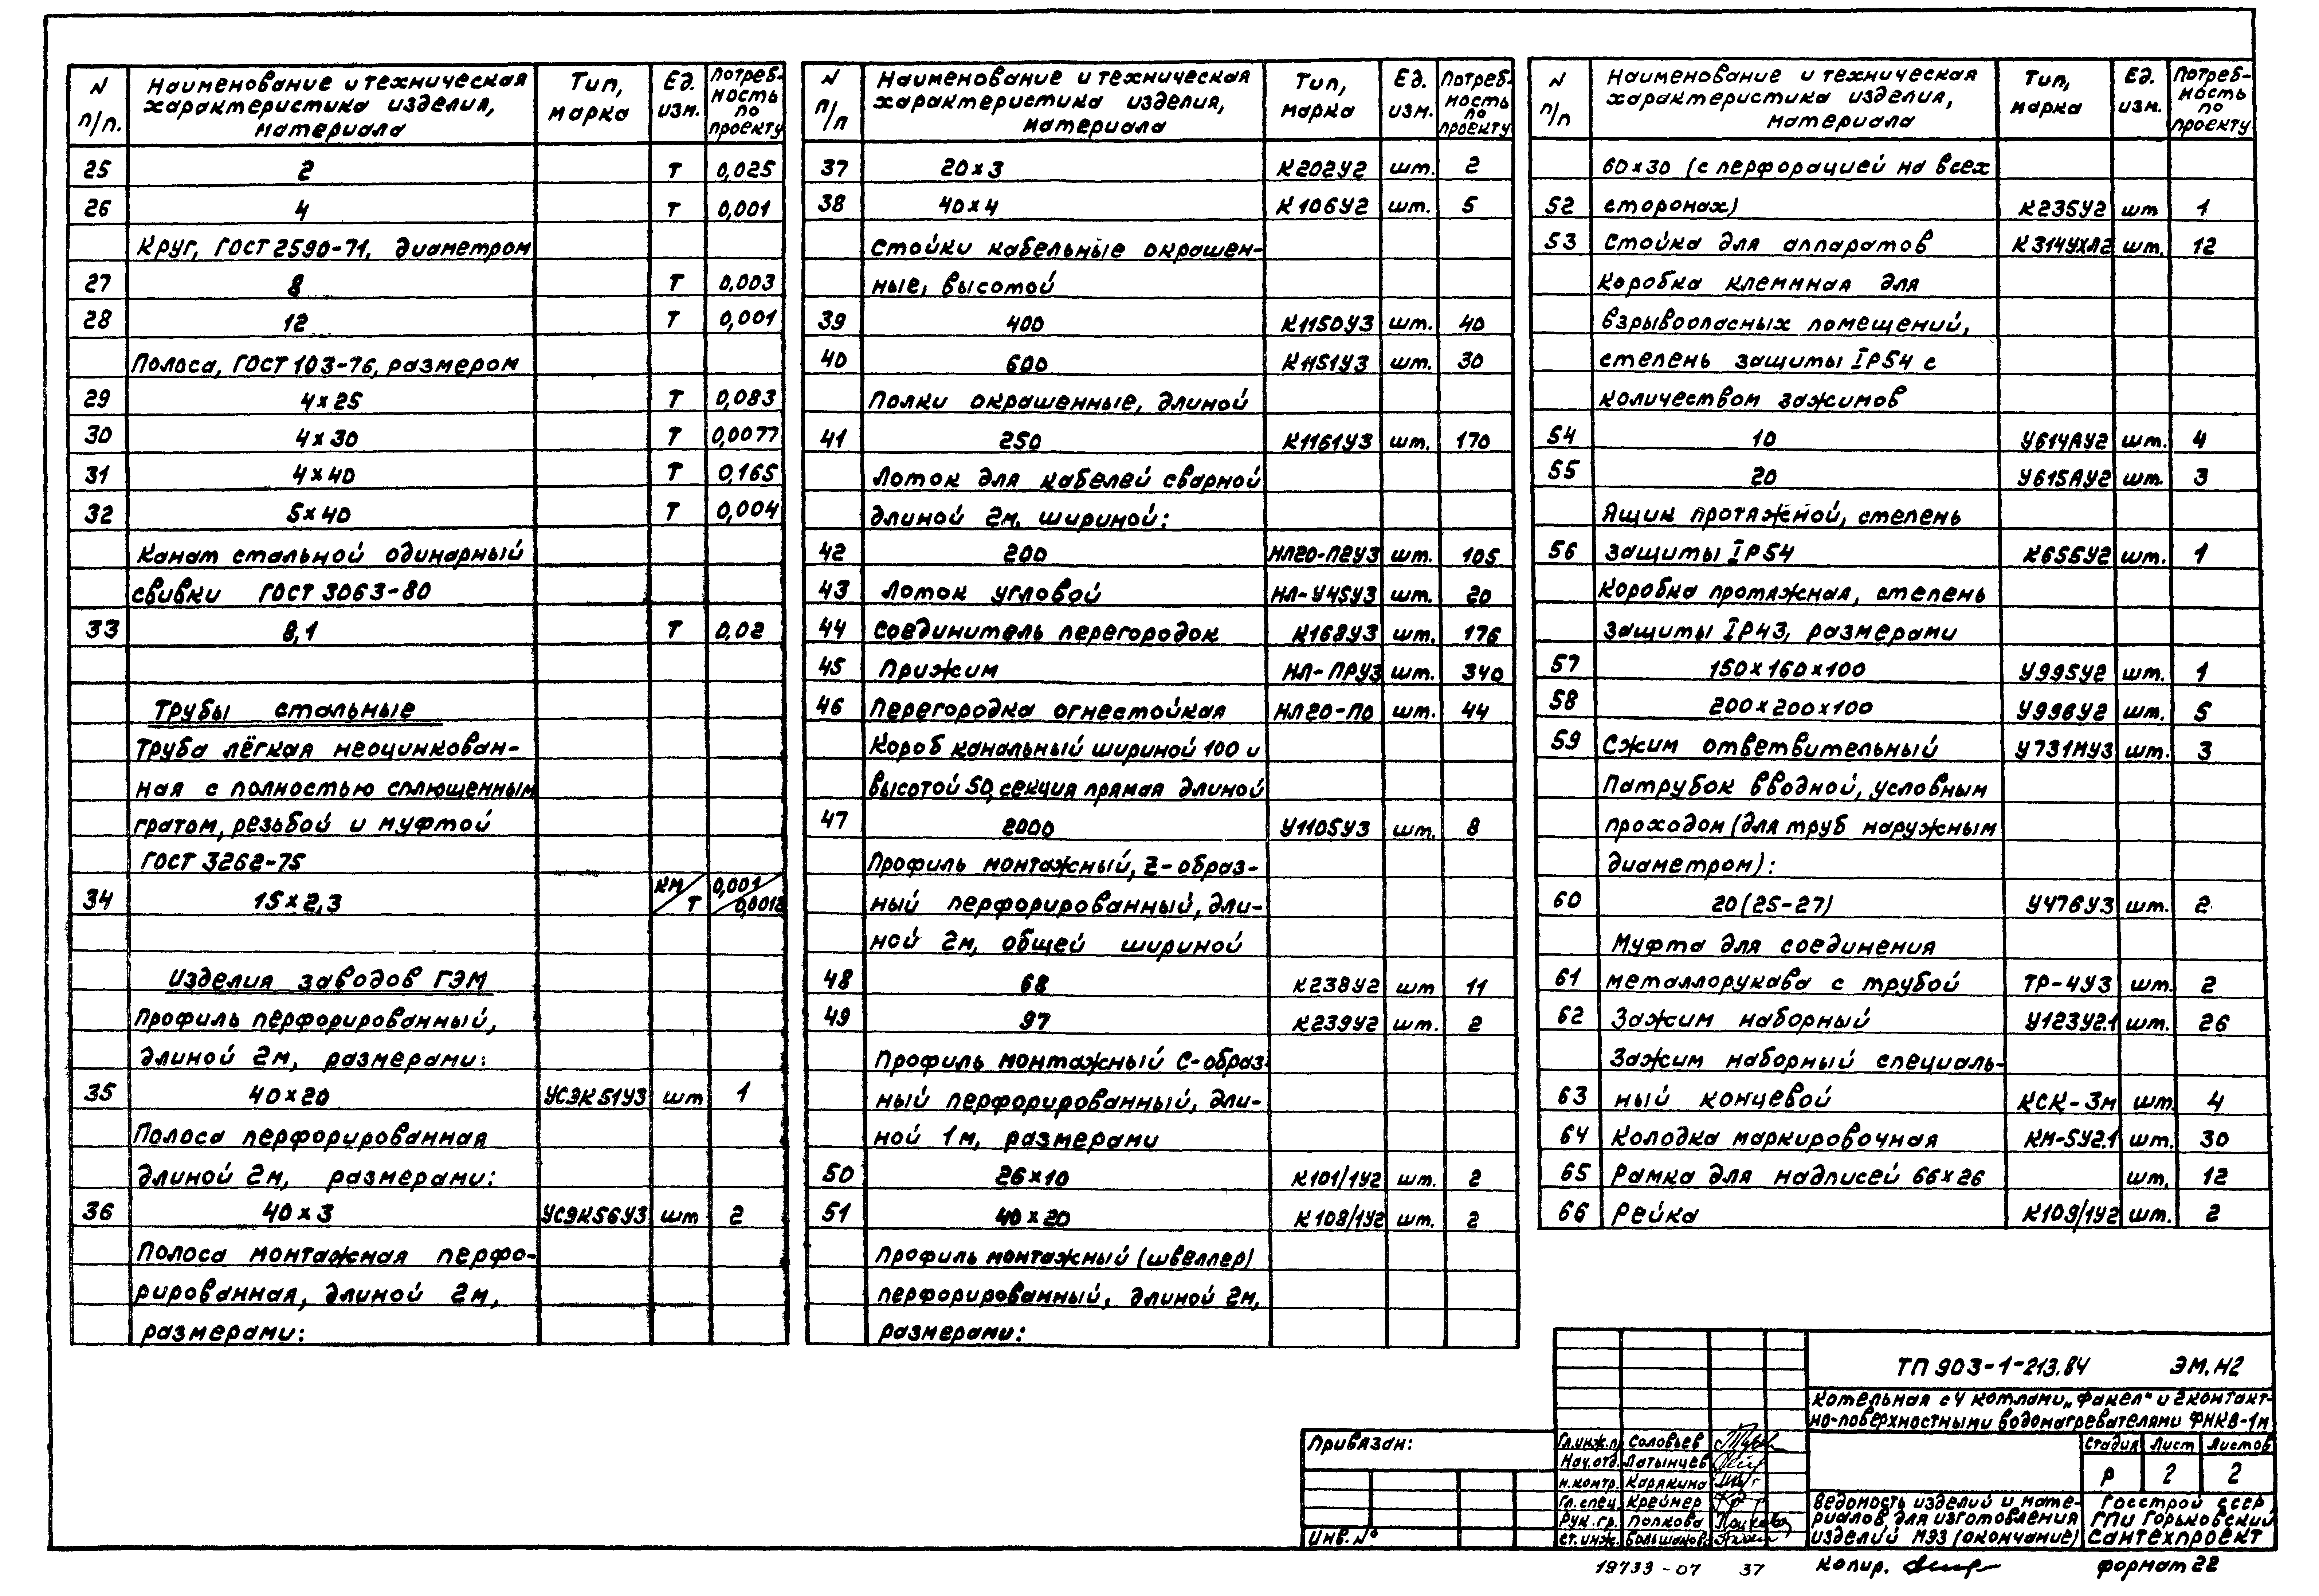 N п/п. Наименование и техническая характеристика изделия, материала Тип, марка Ед. изм. Потребность по проекту
25 2 Т 0,025
26 4 Т 0,001
Круг, ГОСТ 2590-71, диаметром
27 8 Т 0,003
28 12 Т 0,001
Полоса, ГОСТ 103-76, размером
29 4×25 Т 0,083
30 4×30 Т 0,0077
31 4×40 Т 0,165
32 5×40 Т 0,004
Канат стальной одинарный
свивки ГОСТ 3063-80
33 8,1 Т 0,02
Трубы стальные
Труба лёгкая неоцинкован-
ная с полностью сплющенным
гратом, резьбой и муфтой
ГОСТ 3262-75
34 15×2,3 км/т 0,001/0,0012
Изделия заводов ГЭМ
Профиль перфорированный,
длиной 2м, размерами:
35 40×20 УСЭК51У3 шт 1
Полоса перфорированная
длиной 2м, размерами:
36 40×3 УСЭК56У3 шт 2
Полоса монтажная перфо-
рированная, длиной 2м,
размерами:
N п/п Наименование и техническая характеристика изделия, материала Тип, марка Ед. изм. Потребность по проекту
37 20×3 К202У2 шт. 2
38 40×4 К106У2 шт. 5
Стойки кабельные окрашен-
ные, высотой
39 400 К1150У3 шт. 40
40 600 К1151У3 шт. 30
Полки окрашенные, длиной
41 250 К1161У3 шт. 170
Лоток для кабелей сварной
длиной 2м, шириной:
42 200 НЛ20-П2У3 шт. 105
43 Лоток угловой НЛ-У45У3 шт. 20
44 Соединитель перегородок К168У3 шт. 176
45 Прижим НЛ-ПРУ3 шт. 340
46 Перегородка огнестойкая НЛ20-ПО шт. 44
Короб канальный шириной 100 и
высотой 50, секция прямая длиной
47 2000 У1105У3 шт. 8
Профиль монтажный, Z-образ-
ный перфорированный, дли-
ной 2м, общей шириной
48 68 К238У2 шт 11
49 97 К239У2 шт. 2
Профиль монтажный С-образ-
ный перфорированный, дли-
ной 1м, размерами
50 26×10 К101/1У2 шт. 2
51 40×20 К108/1У2 шт. 2
Профиль монтажный (швеллер)
перфорированный, длиной 2м,
размерами:
N п/п Наименование и техническая характеристика изделия, материала Тип, марка Ед. изм. Потребность по проекту
60×30 (с перфорацией на всех
52 сторонах) К235У2 шт 1
53 Стойка для аппаратов К314УХЛ2 шт. 12
Коробка клеммная для
взрывоопасных помещений,
степень защиты IP54 с
количеством зажимов
54 10 У614АУ2 шт. 4
55 20 У615АУ2 шт. 3
Ящик протяжной, степень
56 защиты IP54 К655У2 шт. 1
Коробка протяжная, степень
защиты IP43, размерами
57 150×160×100 У995У2 шт. 1
58 200×200×100 У996У2 шт. 5
59 Сжим ответвительный У731МУ3 шт. 3
Патрубок вводной, условным
проходом (для труб наружным
диаметром):
60 20(25-27) У476У3 шт. 2
Муфта для соединения
61 металлорукава с трубой ТР-4У3 шт. 2
62 Зажим наборный У123У2.1 шт. 26
Зажим наборный специаль-
63 ный концевой КСК-3м шт. 4
64 Колодка маркировочная КМ-5У2.1 шт. 30
65 Рамка для надписей 66×26 шт. 12
66 Рейка К109/1У2 шт. 2
ТП 903-1-213.84 ЭМ.Н2
Котельная с 4 котлами „Факел" и 2 контакт-
но-поверхностными водонагревателями ФНКВ-1м
Привязан:
Инв. №
Гл.инж.п Соловьев
Нач.отд. Латынцев
н.контр. Карякина
Гл.спец. Креймер
Рук.гр. Попкова
ст.инж. Большакова
Стадия Лист Листов
Р 2 2
Ведомость изделий и мате-
риалов для изготовления
изделий МЭЗ (окончание)
Госстрой СССР
ГПИ Горьковский
Сантехпроект
19733-07 37 Копир. формат 22